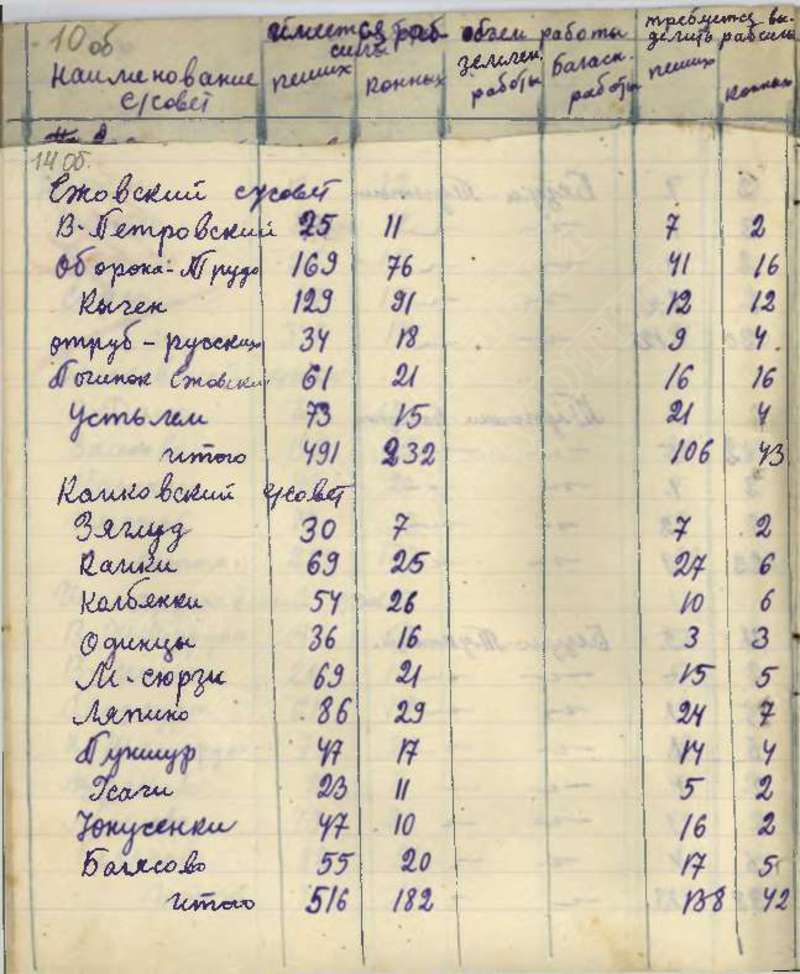 10 об
имеется раб. силы объем работы требуется выделить рабсилы
Наименование с/совет пеших конных землян. работы баласн. работы пеших конных
14 об.
Ежовский с/совет
В-Петровский 25 11 7 2
Оборона-Труда 169 76 41 16
Кычен 129 91 12 12
отруб-русских 34 18 9 4
Починок Ежовский 61 21 16 16
Устьлем 73 15 21 4
итого 491 232 106 43
Каиковский с/совет
Зяглуд 30 7 7 2
Каики 69 25 27 6
Колбянки 54 26 10 6
Одинцы 36 16 3 3
М-сюрзи 69 21 15 5
Ляпино 86 29 24 7
Пукшур 47 17 14 4
23 11 5 2
Юнусенки 47 10 16 2
Багясово 55 20 17 5
итого 516 182 138 42